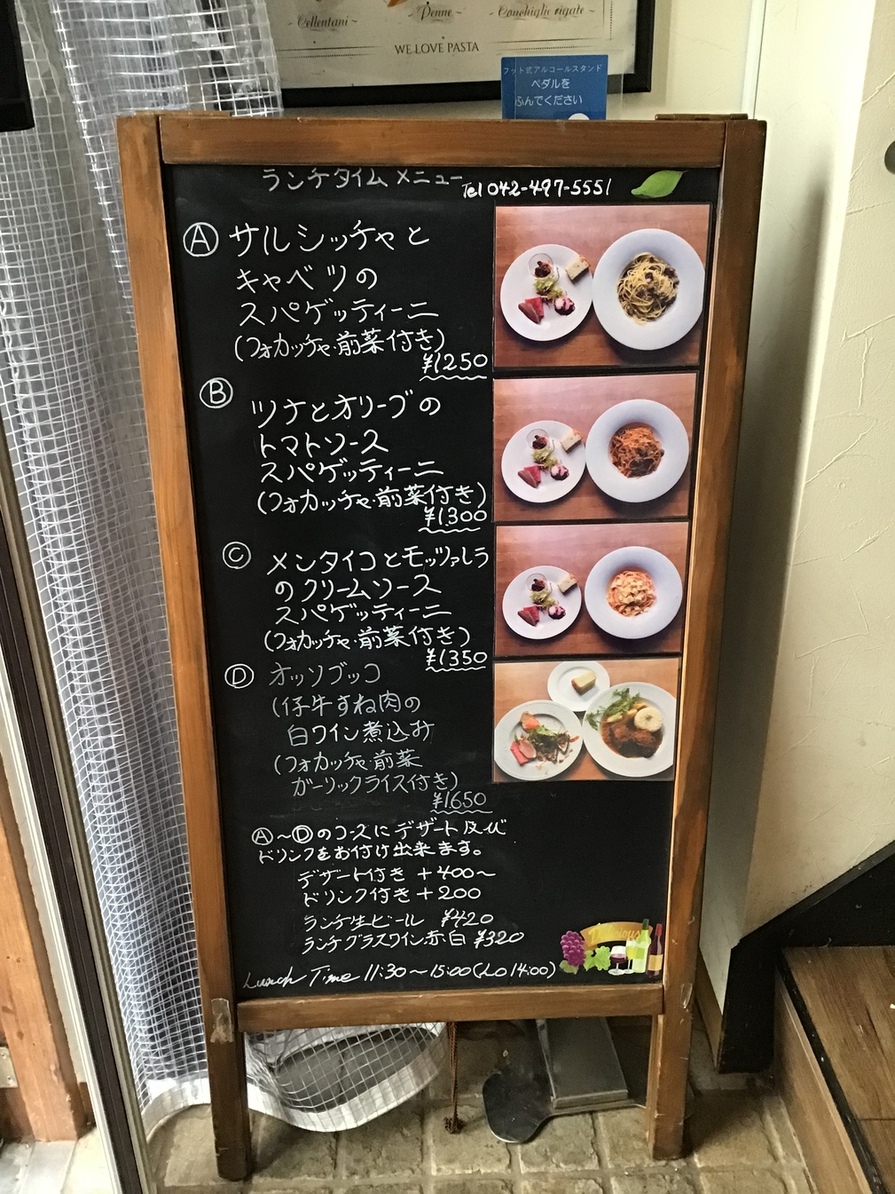 Cellentani ~
~ Penne ~
Conchiglie rigate ~
WE LOVE PASTA
フット式アルコールスタンド
ペダルを
ふんでください
ランチタイム メニュー
Tel 042-497-5551
Ⓐ サルシッチャと
キャベツの
スパゲッティーニ
(フォカッチャ・前菜付き)
¥1250
Ⓑ ツナとオリーブの
トマトソース
スパゲッティーニ
(フォカッチャ・前菜付き)
¥1300
Ⓒ メンタイコとモッツァレラ
のクリームソース
スパゲッティーニ
(フォカッチャ・前菜付き)
¥1350
Ⓓ オッソブッコ
(仔牛すね肉の
白ワイン煮込み
(フォカッチャ・前菜
ガーリックライス付き)
¥1650
Ⓐ~Ⓓのコースに デザート及び
ドリンクをお付け出来ます。
デザート付き +400~
ドリンク付き +200
ランチ生ビール ¥420
ランチグラスワイン赤・白 ¥320
Delicious
Lunch Time 11:30~15:00(Lo 14:00)